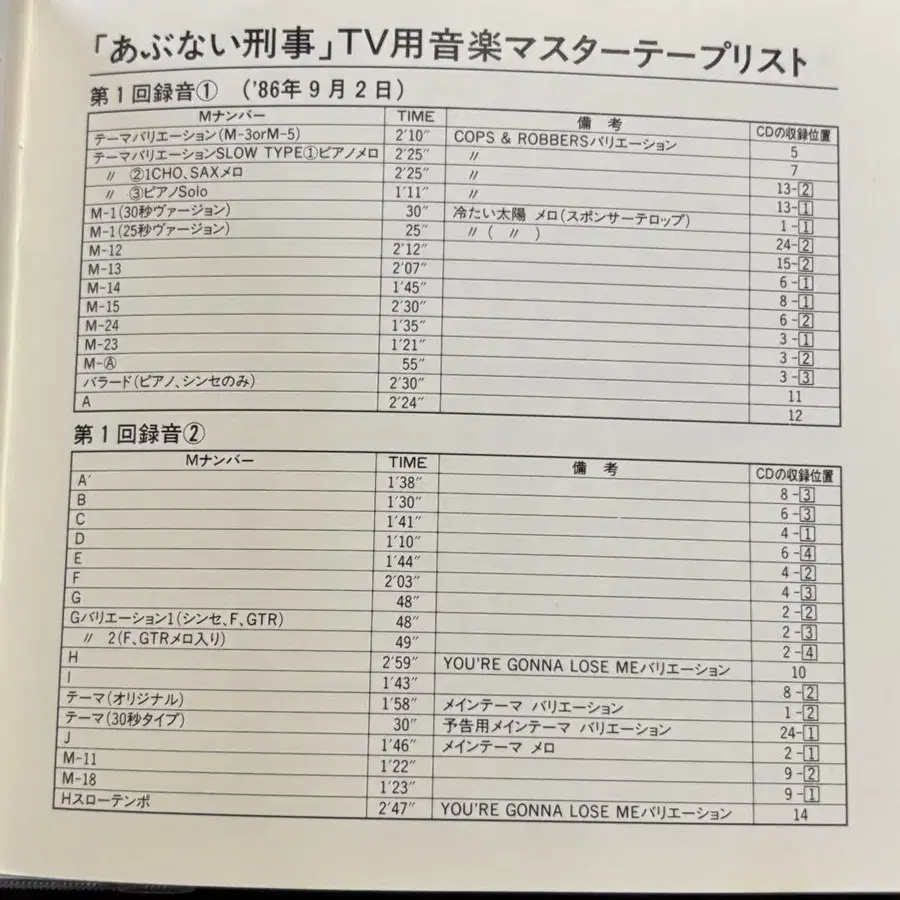 「あぶない刑事」TV用音楽マスターテープリスト
第1回録音① ('86年9月2日)
Mナンバー TIME 備考 CDの収録位置
テーマバリエーション(M-3orM-5) 2'10" COPS & ROBBERSバリエーション 5
テーマバリエーションSLOW TYPE①ピアノメロ 2'25" 〃 7
〃 ②1CHO、SAXメロ 2'25" 〃 13-2
〃 ③ピアノSolo 1'11" 〃 13-1
M-1(30秒ヴァージョン) 30" 冷たい太陽 メロ(スポンサーテロップ) 1-1
M-1(25秒ヴァージョン) 25" 〃 ( 〃 ) 24-2
M-12 2'12" 15-2
M-13 2'07" 6-1
M-14 1'45" 8-1
M-15 2'30" 6-2
M-24 1'35" 3-1
M-23 1'21" 3-2
M-Ⓐ 55" 3-3
バラード(ピアノ、シンセのみ) 2'30" 11
A 2'24" 12
第1回録音②
Mナンバー TIME 備考 CDの収録位置
A' 1'38" 8-3
B 1'30" 6-3
C 1'41" 4-1
D 1'10" 6-4
E 1'44" 4-2
F 2'03" 4-3
G 48" 2-2
Gバリエーション1(シンセ、F、GTR) 48" 2-3
〃 2(F、GTRメロ入り) 49" 2-4
H 2'59" YOU'RE GONNA LOSE MEバリエーション 10
I 1'43" 8-2
テーマ(オリジナル) 1'58" メインテーマ バリエーション 1-2
テーマ(30秒タイプ) 30" 予告用メインテーマ バリエーション 24-1
J 1'46" メインテーマ メロ 2-1
M-11 1'22" 9-2
M-18 1'23" 9-1
Hスローテンポ 2'47" YOU'RE GONNA LOSE MEバリエーション 14